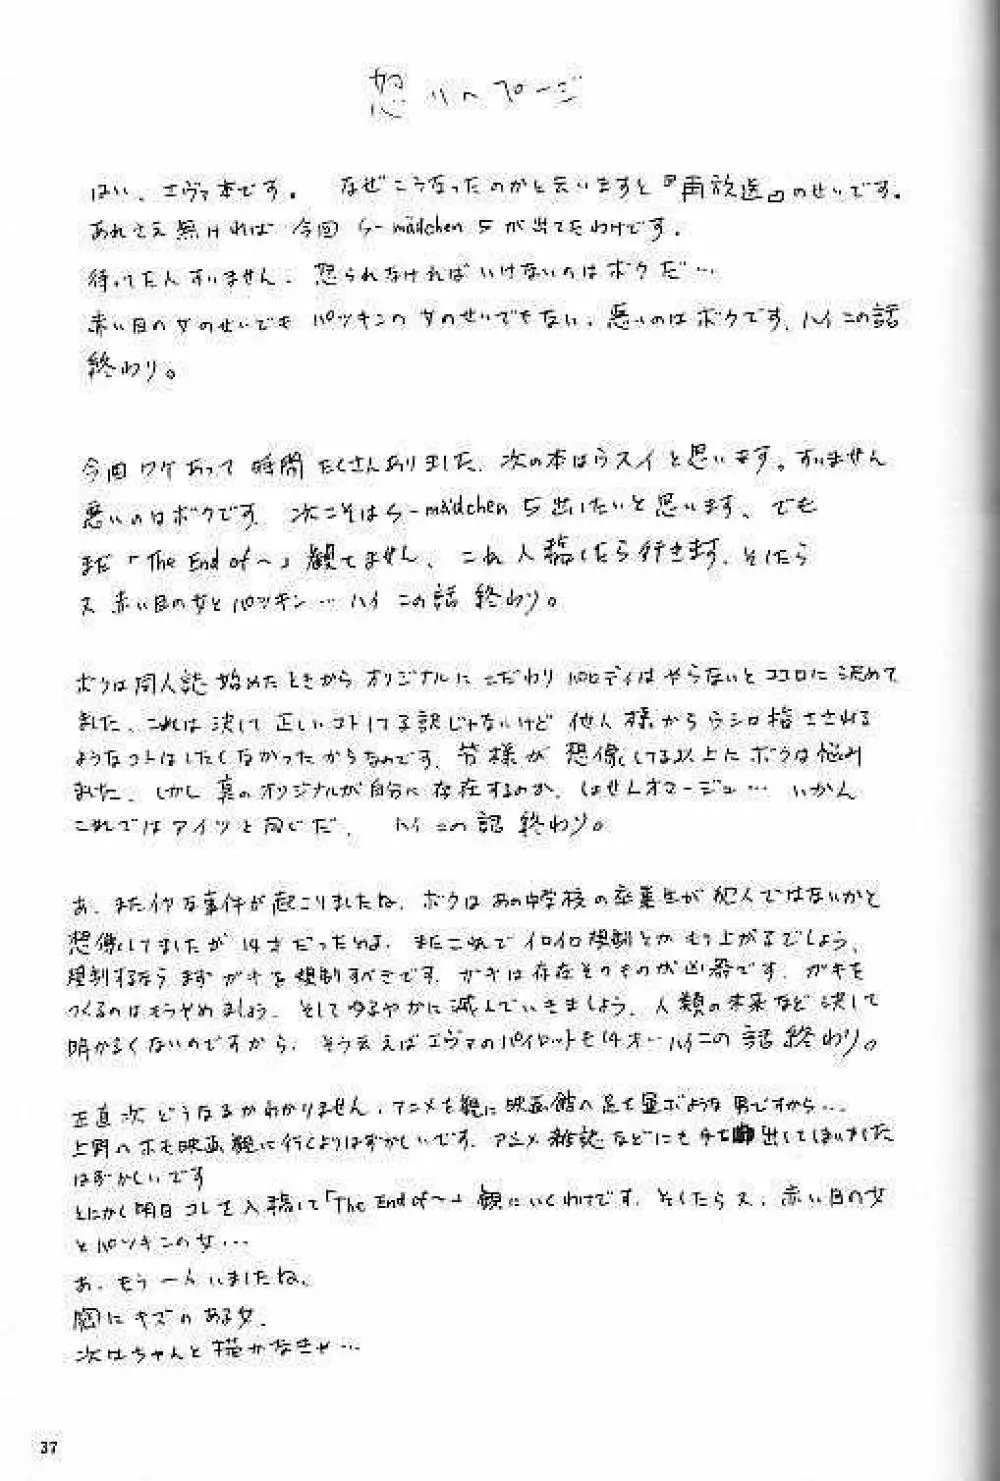 怒りのページ
はい、エヴァ本です。 なぜこうなったのかと云いますと『再放送』のせいです。
あれさえ無ければ 今回 S-mädchen 5 が出てたわけです。
待ってた人すいません、怒られなければいけないのはボクだ…
赤い目の女のせいでも パツキンの女のせいでもない、悪いのはボクです、ハイこの話
終わり。
今回ワケあって 時間たくさんありました、次の本はウスイと思います。すいません
悪いのはボクです 次こそはS-mädchen 5 出したいと思います、でも
まだ「The End of〜」観てません、これ入稿したら行きます、そしたら
又 赤い目の女とパツキン…ハイ この話 終わり。
ボクは同人誌始めたときから オリジナルにこだわり パロディはやらないとココロに決めて
ました、これは決して正しいコトしてる訳じゃないけど 他人様からうしろ指さされる
ようなコトはしたくなかったからなのです、皆様が 想像してる以上にボクは悩み
ました、しかし真のオリジナルが自分に存在するのか、しょせんオマージュ… いかん
これではアイツと同じだ、 ハイ この話 終わり。
あ、また 事件が起こりましたね、ボクはあの中学校の卒業生が犯人ではないかと
想像してましたが 14才だったのよ、またこれでイロイロ規制とかもり上がるでしょう、
規制するならまずガキを規制すべきです、ガキは存在そのものが凶器です、ガキを
つくるのはもうやめましょう、そしてゆるやかに滅んでいきましょう、人類の未来など決して
明かるくないのですから、そう云えばエヴァのパイロットも14才…ハイこの話終わり。
正直次どうなるかわかりません、アニメを観に映画館へ足を運ぶような男ですから…
上野へホモ映画観に行くよりはずかしいです、アニメ雑誌などにも手を出してしまいました
はずかしいです
とにかく明日コレを入稿して「The End of〜」観にいくわけです、そしたら又、赤い目の女
とパツキンの女…
あ、もう一人いましたね、
胸にキズのある女、
次はちゃんと描かなきゃ…
37